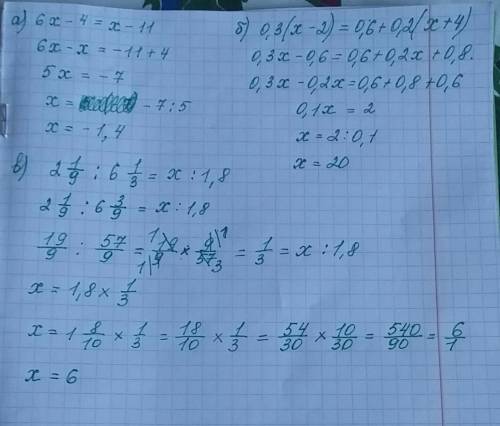 а) 6x - 4 = x - 11
6x - x = -11 + 4
5x = -7
x = - 7 : 5
x = - 1,4
б) 0,3(x - 2) = 0,6 + 0,2(x + 4)
0,3x - 0,6 = 0,6 + 0,2x + 0,8.
0,3x - 0,2x = 0,6 + 0,8 + 0,6
0,1x = 2
x = 2 : 0,1
x = 20
в) 2 1/9 : 6 1/3 = x : 1,8
2 1/9 : 6 3/9 = x : 1,8
19/9 : 57/9 = 19/9 × 9/57 = 1/3 = x : 1,8
x = 1,8 × 1/3
x = 1 8/10 × 1/3 = 18/10 × 1/3 = 54/30 × 10/30 = 540/90 = 6/1
x = 6